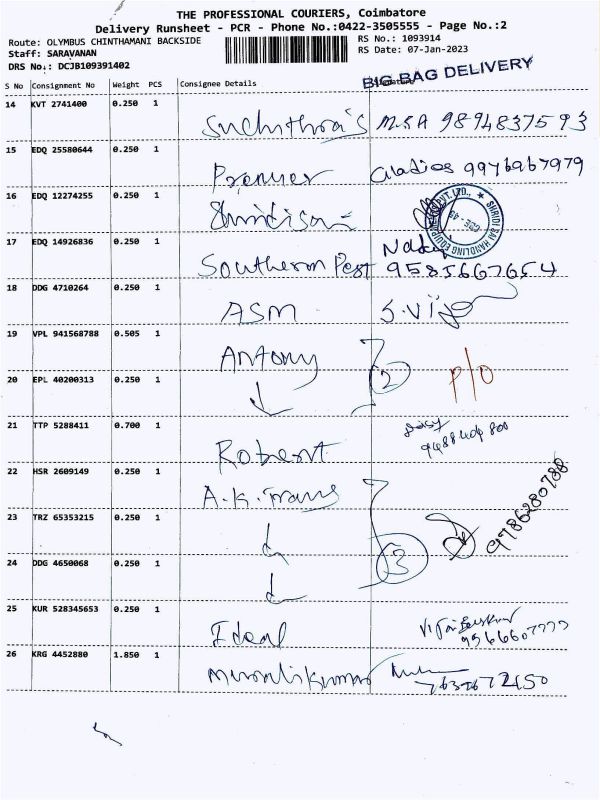 THE PROFESSIONAL COURIERS, Coimbatore
Delivery Runsheet - PCR - Phone No.:0422-3505555 - Page No.:2
Route: OLYMBUS CHINTHAMANI BACKSIDE
RS No.: 1093914
Staff: SARAVANAN
RS Date: 07-Jan-2023
DRS No.: DCJB109391402
BIG BAG DELIVERY
S No Consignment No Weight PCS Consignee Details
14 KVT 2741400 0.250 1
Suchithra's M.S.A 9894837593
15 EDQ 25580644 0.250 1
Premier 9976967979
16 EDQ 12274255 0.250 1
SHRIDI SAI HANDLING EQUIPMENT PVT. LTD.,
17 EDQ 14926836 0.250 1
Southern Pest 9585667654
18 DDG 4710264 0.250 1
ASM S.Vijay
19 VPL 941568788 0.505 1
Antony
2
P/O
20 EPL 40200313 0.250 1
21 TTP 5288411 0.700 1
Robert
22 HSR 2609149 0.250 1
A.K. Trans
23 TRZ 65353215 0.250 1
3
9786280788
24 DDG 4650068 0.250 1
25 KUR 528345653 0.250 1
Ideal
26 KRG 4452880 1.850 1
Muralikumar